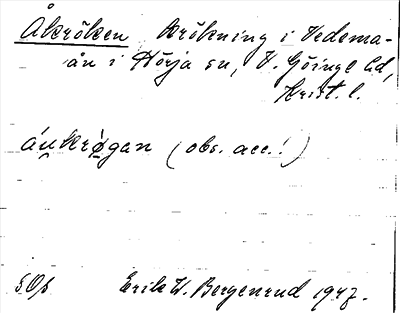 Åkröken krökning i Vedema-
ån i Hörja sn, V. Göinge hd,
Krist. l.
áu̯krø̱gan (obs. acc.!)
sOp Erik W. Bergenrud 1947.